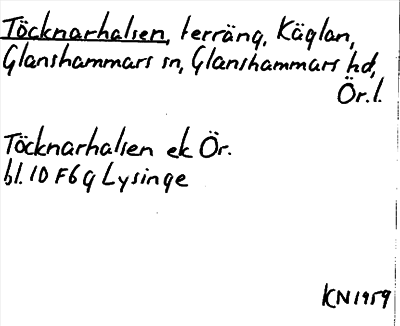 Töcknarhalsen, terräng, Käglan,
Glanshammars sn, Glanshammars hd,
Ör.l.
Töcknarhalsen ek Ör.
bl. 10 F 6 g Lysinge
KN 1959